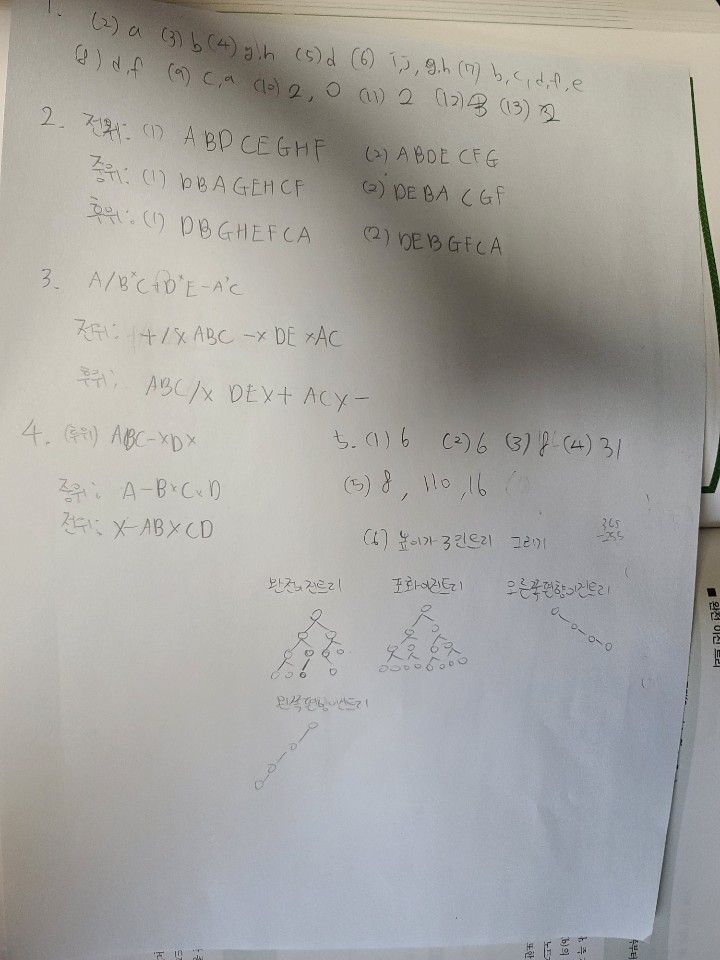 1. (2) a (3) b (4) g, h (5) d (6) i, j, g, h (7) b, c, d, f, e
(8) d, f (9) c, a (10) 2, 0 (11) 2 (12) 3 (13)
2. 전위: (1) ABDCEGHF (2) ABDECFG
중위: (1) DBAGEHCF (2) DEBACGF
후위: (1) DBGHEFCA (2) DEBGFCA
3. A/B*C+D*E-A*C
전위: +/×ABC -×DE ×AC
후위: ABC/× DE×+ AC×-
4. (후위) ABC-×D×
중위: A-B×C×D
전위: ×-AB×CD
5. (1) 6 (2) 6 (3) 8 (4) 31
(5) 8, 110, 16
(6) 높이가 3인트리 그리기
365
-255
완전이진트리 포화이진트리 오른쪽편향이진트리
왼쪽편향이진트리
■ 완전 이진 트리